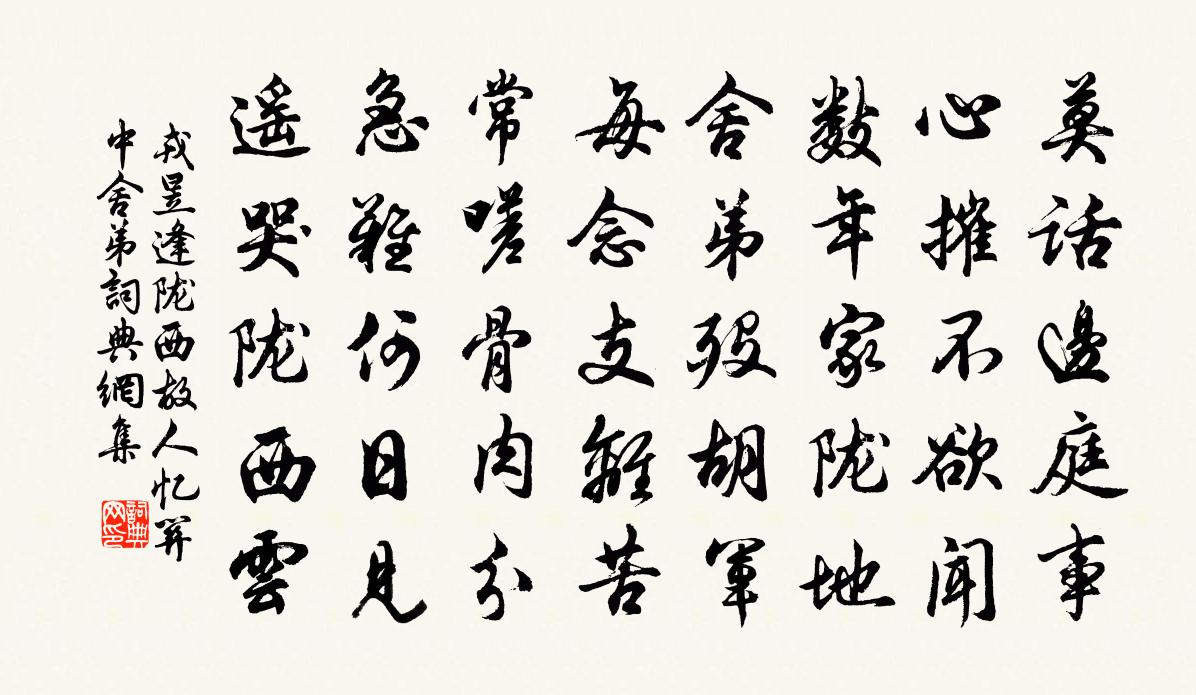 莫話邊庭事
心摧不欲聞
數年家陇地
舍弟殁胡軍
每念支離苦
常嗟骨肉分
急難何日見
遥哭陇西雲
戎昱逢陇西故人忆關
中舍弟詞典網集
詞典网印